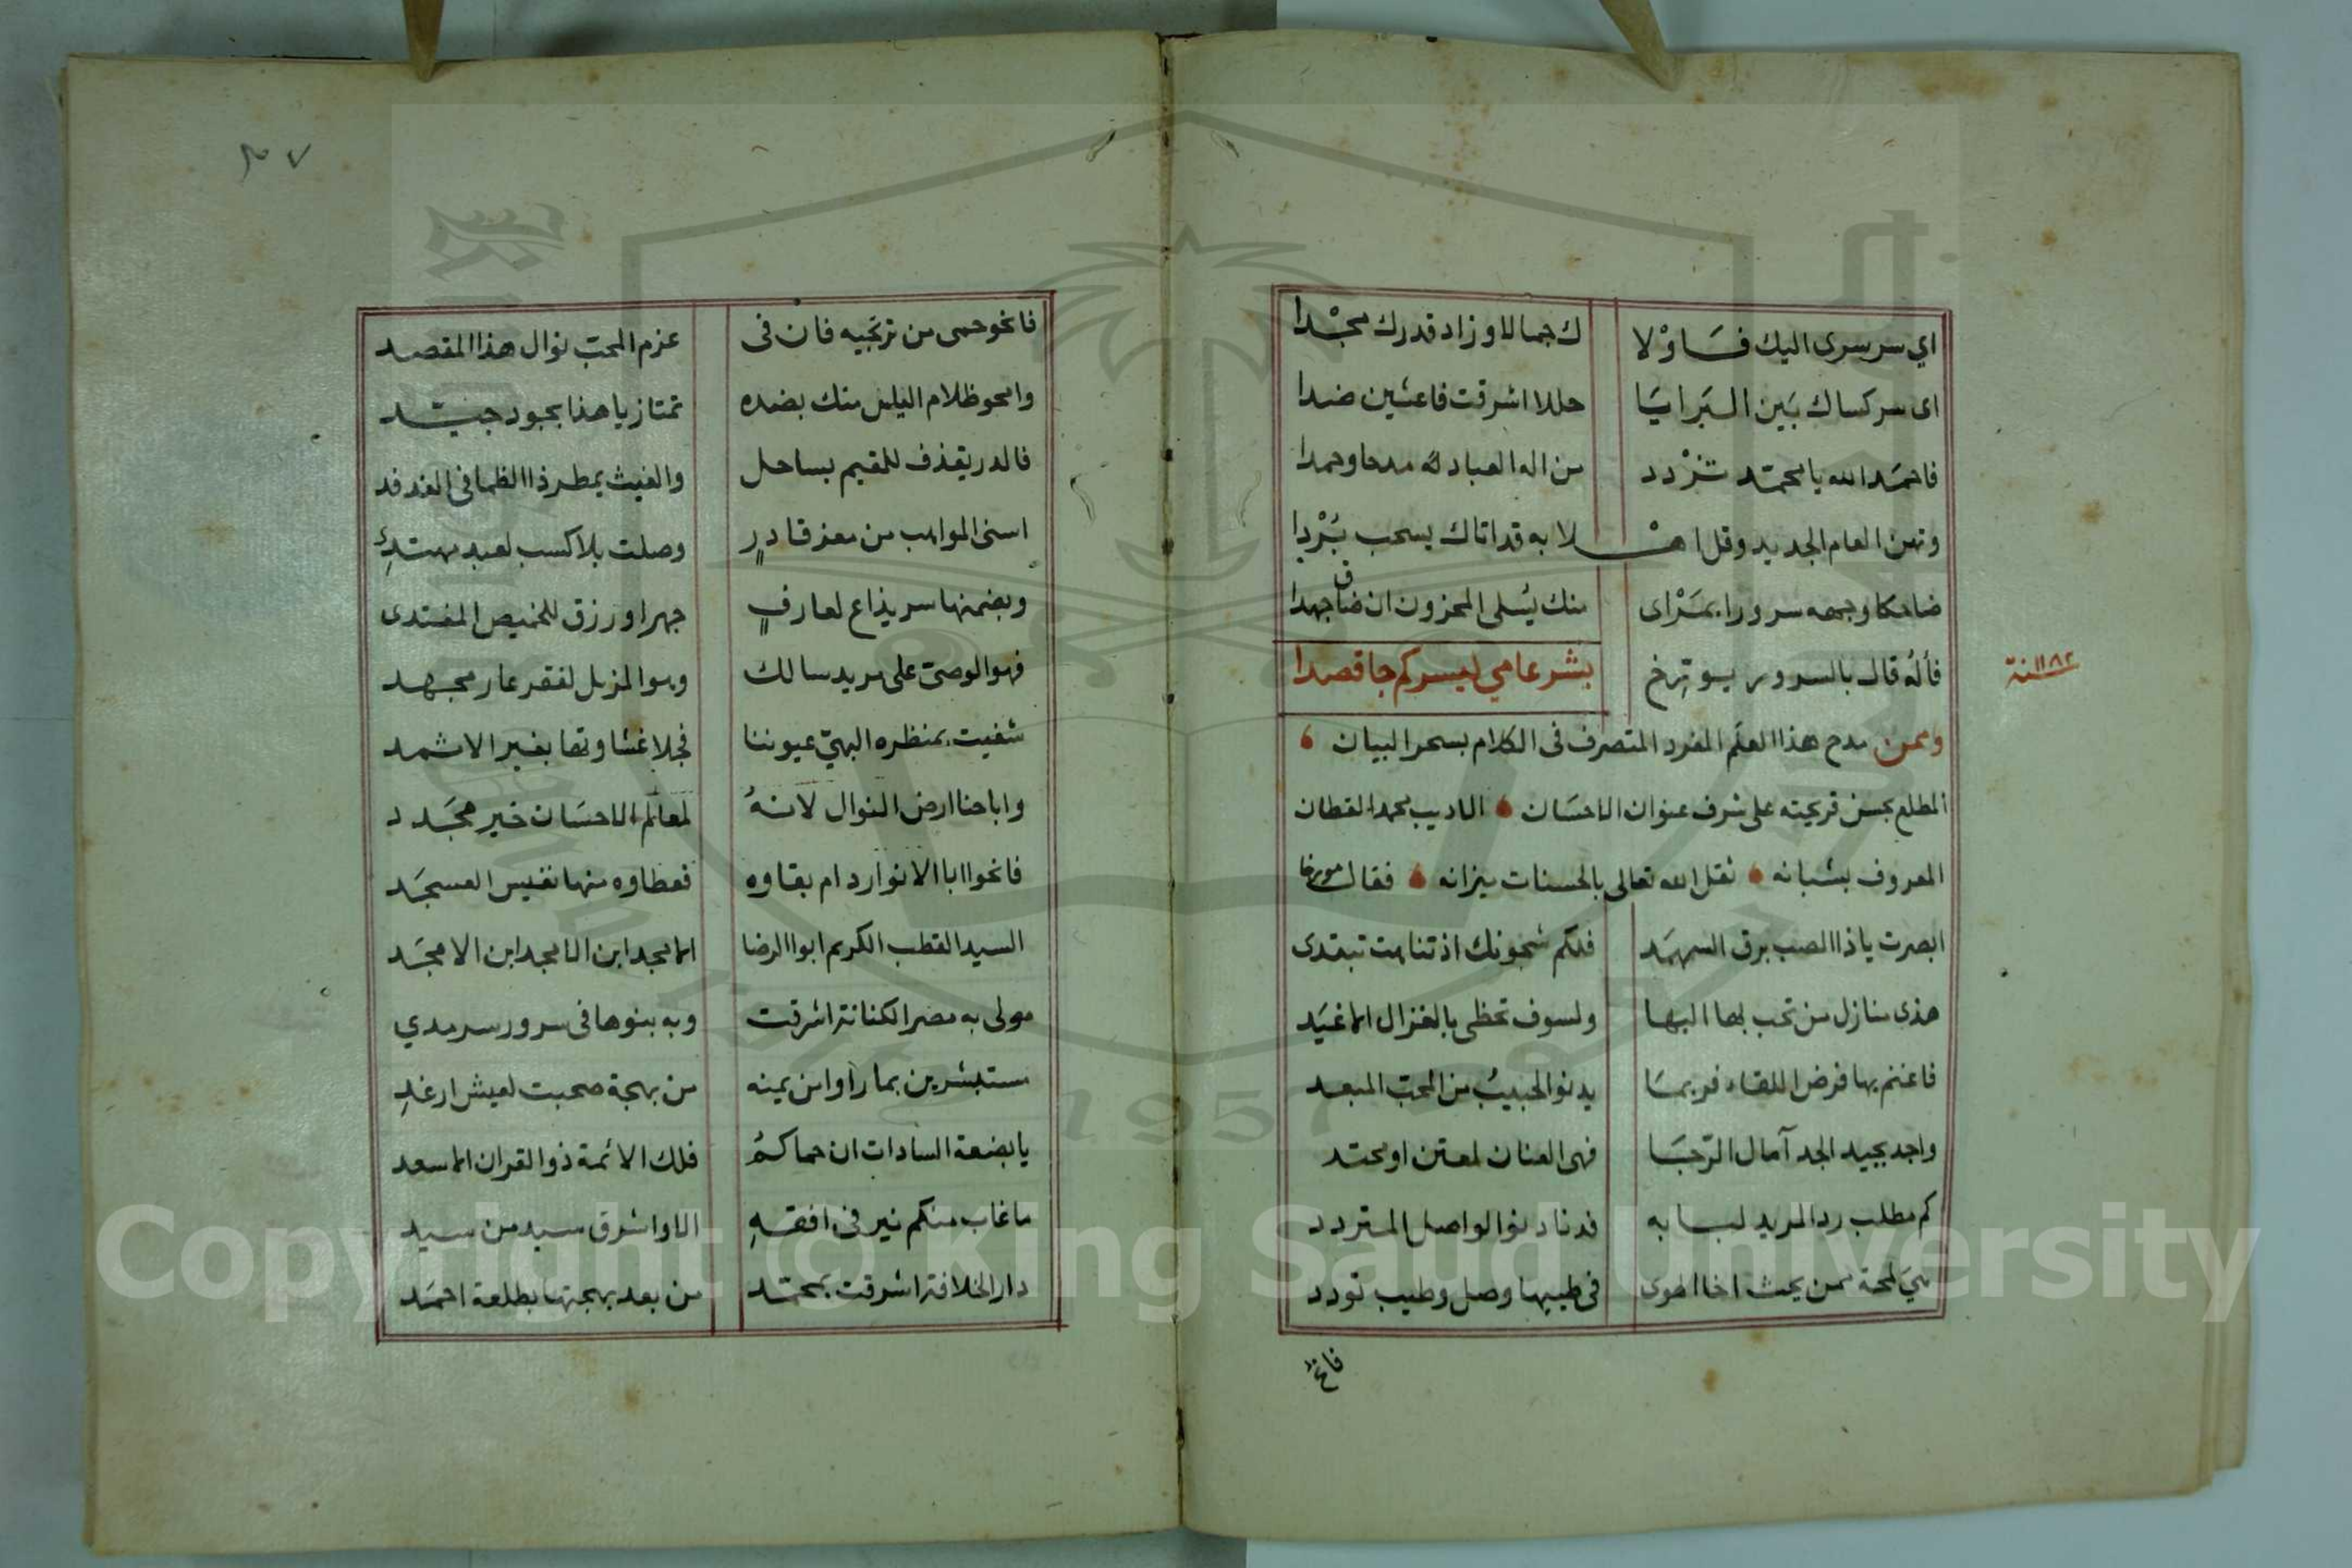 اي سر سرى اليك فساولا ك جمالا وزاد قدرك مجدا
اى سر كساك بين البرايا حللا اشرقت فاعشين ضدا
فاحمد الله يا محمد تزدد من اله العباد له مدحا وحمدا
وتهن العام الجديد وقل اهلا به قد اتاك يسحب بردا
ضاحكا وجهه سرورا بمراى منك يسلى المحزون ان ضاق جهدا
فأله قال بالسرور يورخ بشر عامي ليسركم جا قصدا
سنة ١١٨٢
وممن مدح هذا العلم المفرد المتصرف فى الكلام بسحر البيان
المطلع بحسن قريحته على شرف عنوان الاحسان الاديب محمد القطان
المعروف بشبانه ثقل الله تعالى بالحسنات ميزانه فقال مورخا
ابصرت ياذا الصب برق السهمد فلكم شجونك اذ تنامت تبتدى
هذى منازل من تحب بها البها ولسوف تحظى بالغزال الاغيد
فاغنم بها فرض اللقاء فربما يدنو الحبيب من المحب المبعد
واجد بجيد الجد آمال الرجا فهى العنان لمعتن او محتد
كم مطلب رد المريد لبابه قد ناد نوا لواصل المتردد
هي لمحة ممن يحث اخا الهوى فى طيبها وصل وطيب تودد
فانح
٣٧
فانحو حمى من ترتجيه فان فى عزم المحب نوال هذا المقصد
وامحو ظلام الغيلس منك بضده تمتاز يا هذا بجود جيد
فالدر يقذف للمقيم بساحل والغيث يمطر ذا الظما فى الفدفد
اسنى المواهب من معز قادر وصلت بلا كسب لعبد مهتد
وبضمنها سر يذاع لعارف جهرا ورزق للخميص المغتدى
فهو الوصى على مريد سالك وهو المزيل لفقر عار مجهد
شفيت بمنظره البهي عيوننا فجلا غشاوتها بغير الاثمد
واباحنا ارض النوال لانه لمعالم الاحسان خير مجدد
فانحوا ابا الانوار دام بقاوه فعطاوه منها نفيس العسجد
السيد القطب الكريم ابوا الرضا الامجد ابن الامجد ابن الامجد
مولى به مصر الكنانة اشرقت وبه بنوها فى سرور سرمدي
مستبشرين بما راوا من يمنه من بهجة صحبت لعيش ارغد
يا بضعة السادات ان حماكم فلك الائمة ذو القران الاسعد
ما غاب منكم نير فى افقه الا واشرق سيد من سيد
دار الخلافة اشرقت بمحمد من بعد بهجتها بطلعة احمد
Copyright © King Saud University
1957